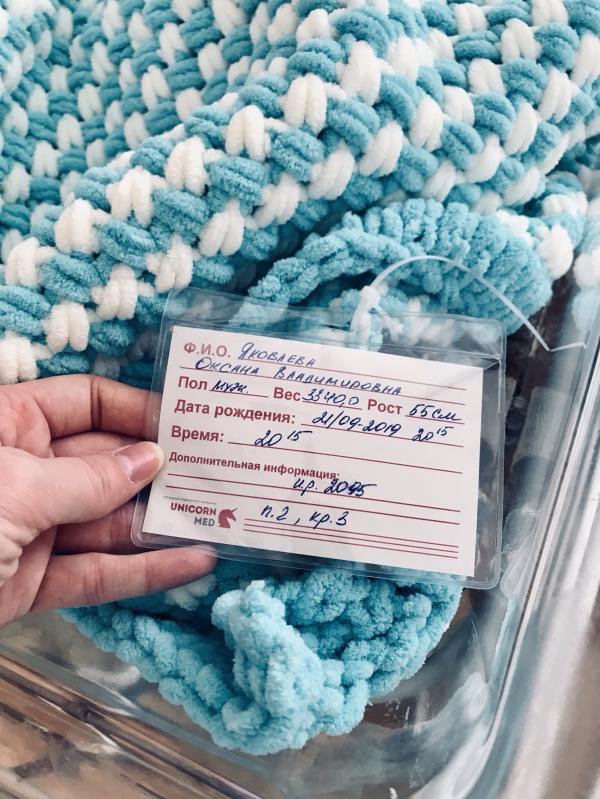 Ф.И.О. Яковлева
Оксана Владимировна
Пол муж. Вес 3340,0 Рост 55 см
Дата рождения: 21/09-2019 20 15
Время: 20 15
Дополнительная информация:
и.р. 2095
UNICORN п.2, кр.3
MED